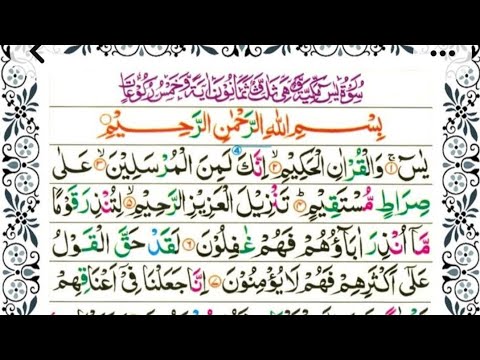 سُوْرَةُ يٰسٓ مَكِّيَّةٌ وَّهِيَ ثَلٰثٌ وَّثَمَانُوْنَ اٰيَةً وَّخَمْسُ رُكُوْعَاتٍ
بِسْمِ اللّٰهِ الرَّحْمٰنِ الرَّحِيْمِ
يٰسٓ ۚ‏﴿۱﴾ وَالْقُرْاٰنِ الْحَكِيْمِ ۙ‏﴿۲﴾ اِنَّكَ لَمِنَ الْمُرْسَلِيْنَ ۙ‏﴿۳﴾ عَلٰى
صِرَاطٍ مُّسْتَقِيْمٍ ؕ‏﴿۴﴾ تَنْزِيْلَ الْعَزِيْزِ الرَّحِيْمِ ۙ‏﴿۵﴾ لِتُنْذِرَ قَوْمًا
مَّاۤ اُنْذِرَ اٰبَآؤُهُمْ فَهُمْ غٰفِلُوْنَ ‏﴿۶﴾ لَقَدْ حَقَّ الْقَوْلُ
عَلٰٓى اَكْثَرِهِمْ فَهُمْ لَا يُؤْمِنُوْنَ ‏﴿۷﴾ اِنَّا جَعَلْنَا فِيْۤ اَعْنَاقِهِمْ